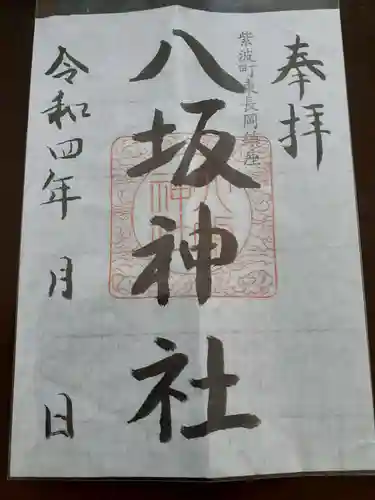 奉拝
紫波町東長岡鎮座
八坂神社
令和四年 月 日